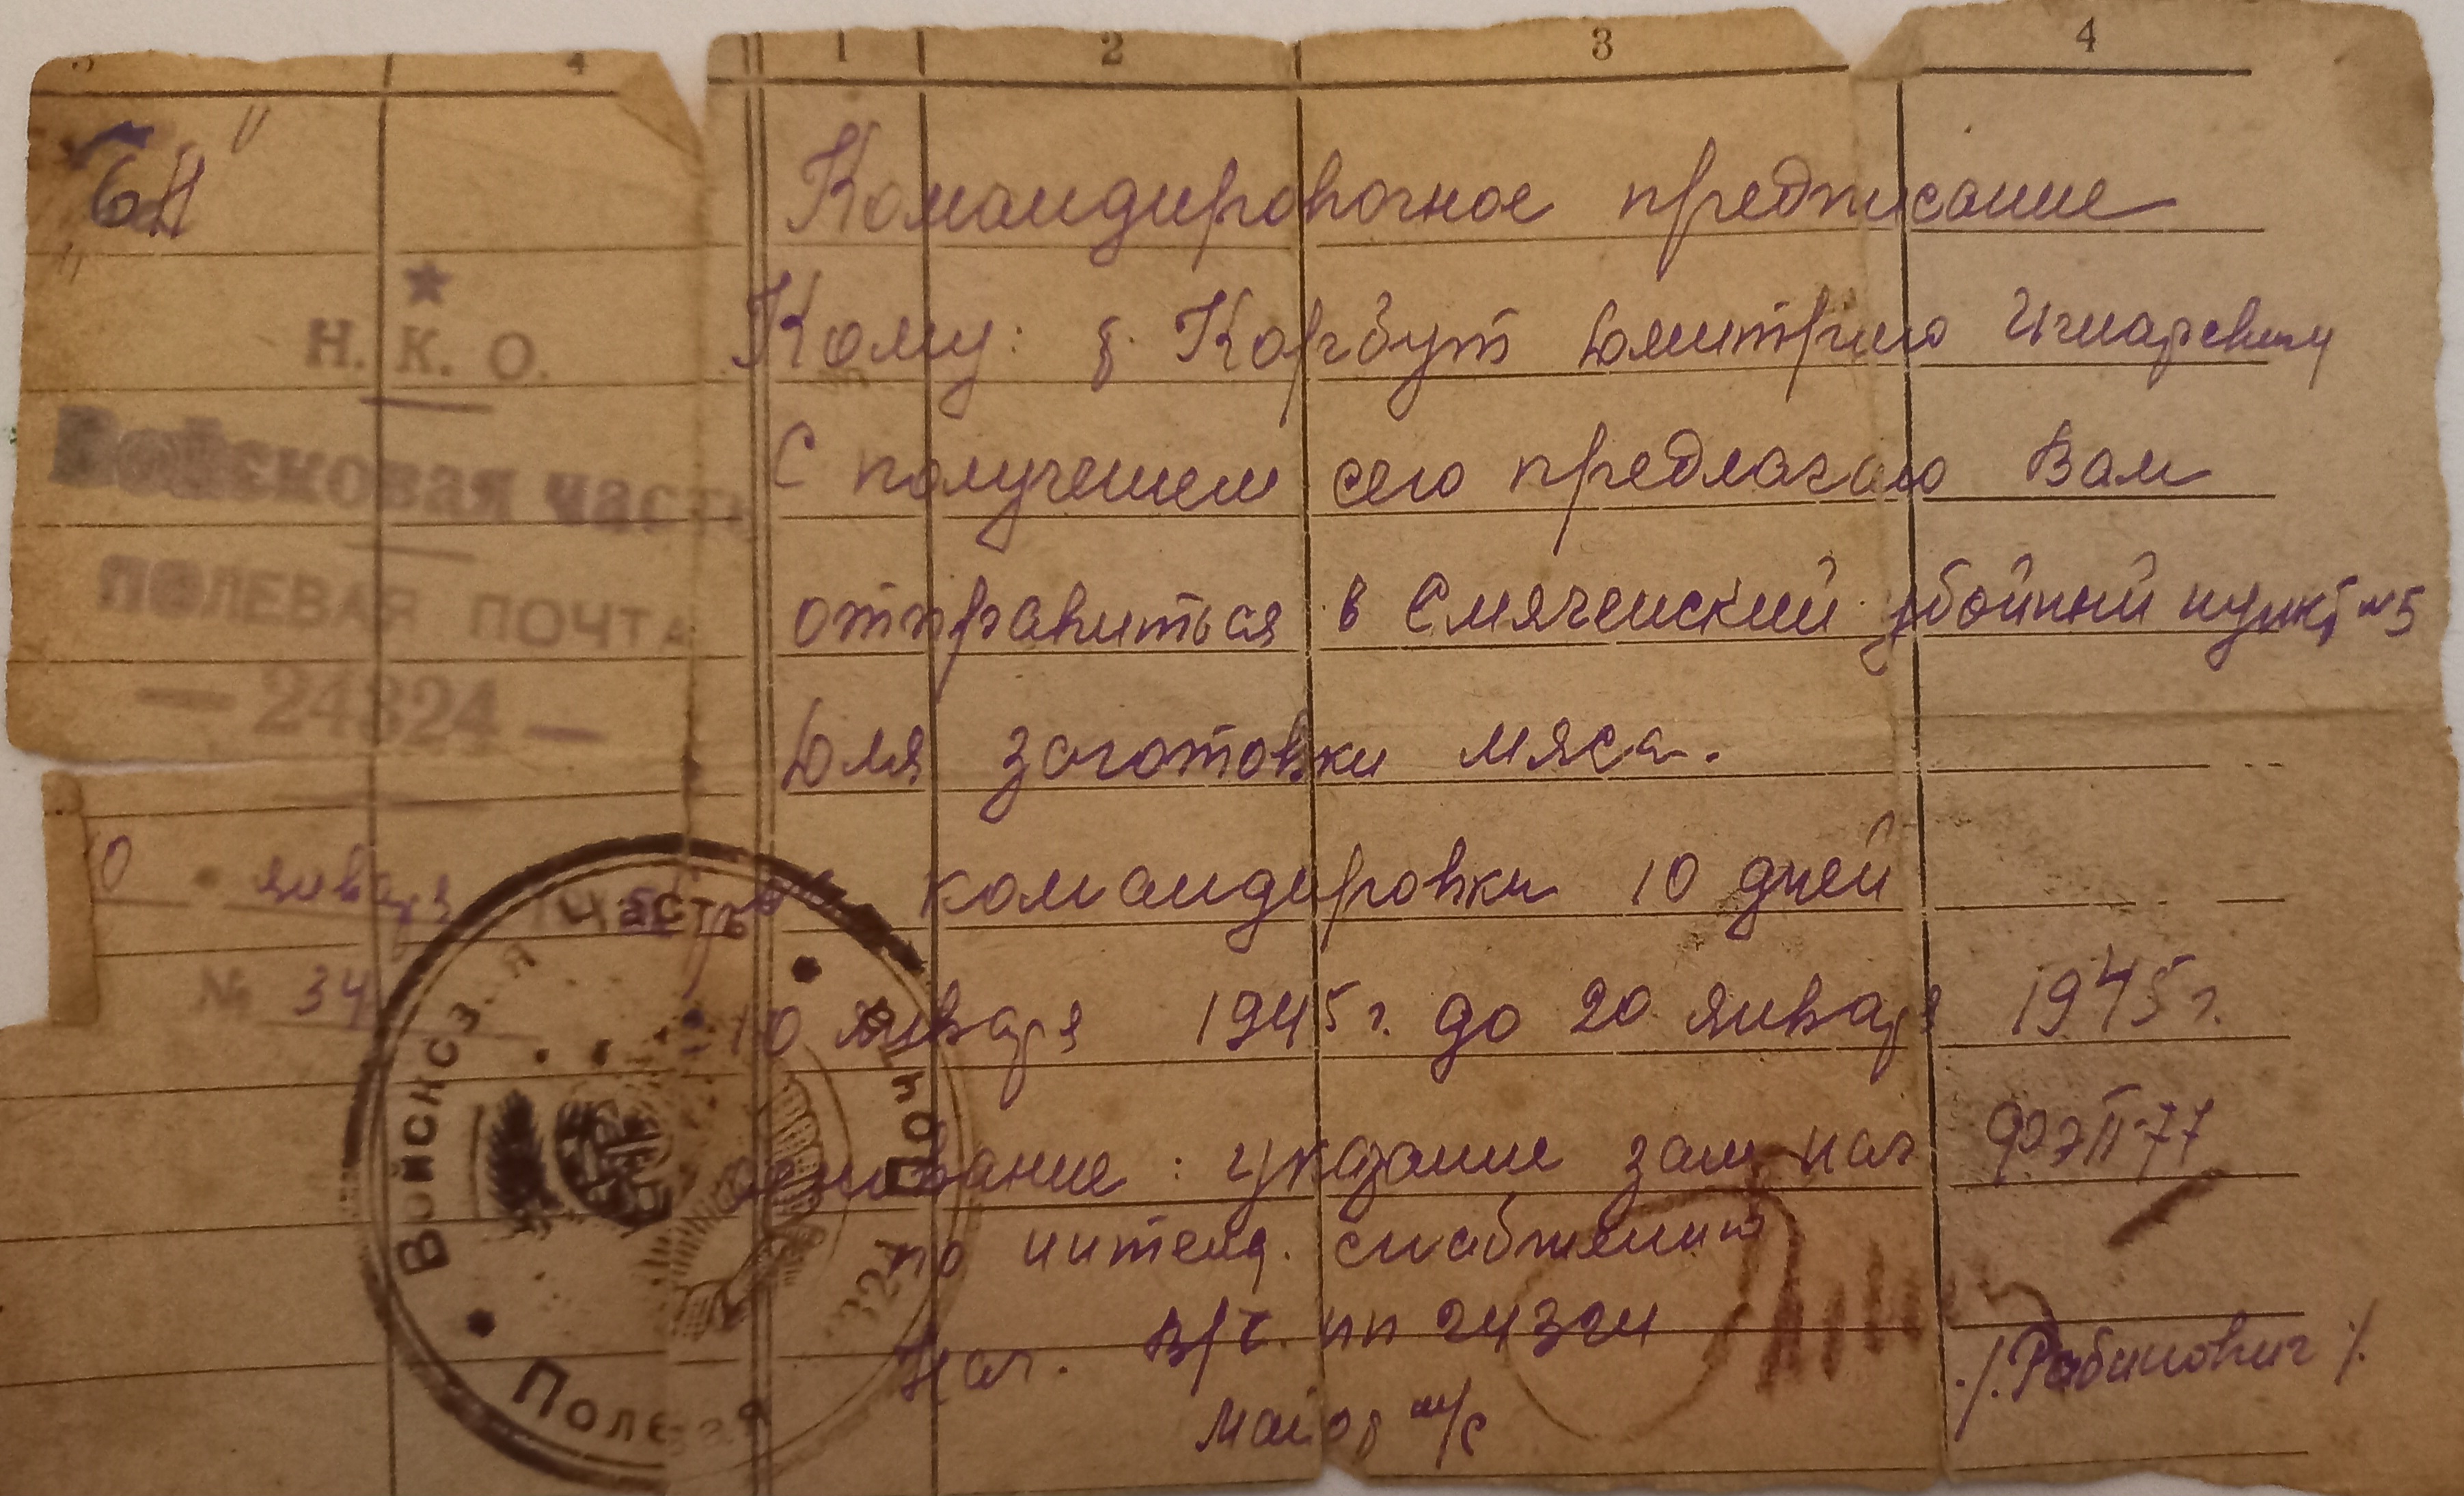 3 4 1 2 3 4
Н. К. О.
Войсковая часть
ПОЛЕВАЯ ПОЧТА
— 24324 —
10 января
№ 34
Командировочное предписание
Кому: Корбут Дмитрию
С получением сего предлагаю Вам
отправиться в Смяченский убойный пункт №5
Для заготовки мяса.
командировки 10 дней
10 января 1945 г. до 20 января 1945 г.
основание: указание зам нач ФЭП-77
по интенд. снабжению
Нач. В/ч. пп
Майор /Рабинович/.
Войсковая Часть
Полевая Почта